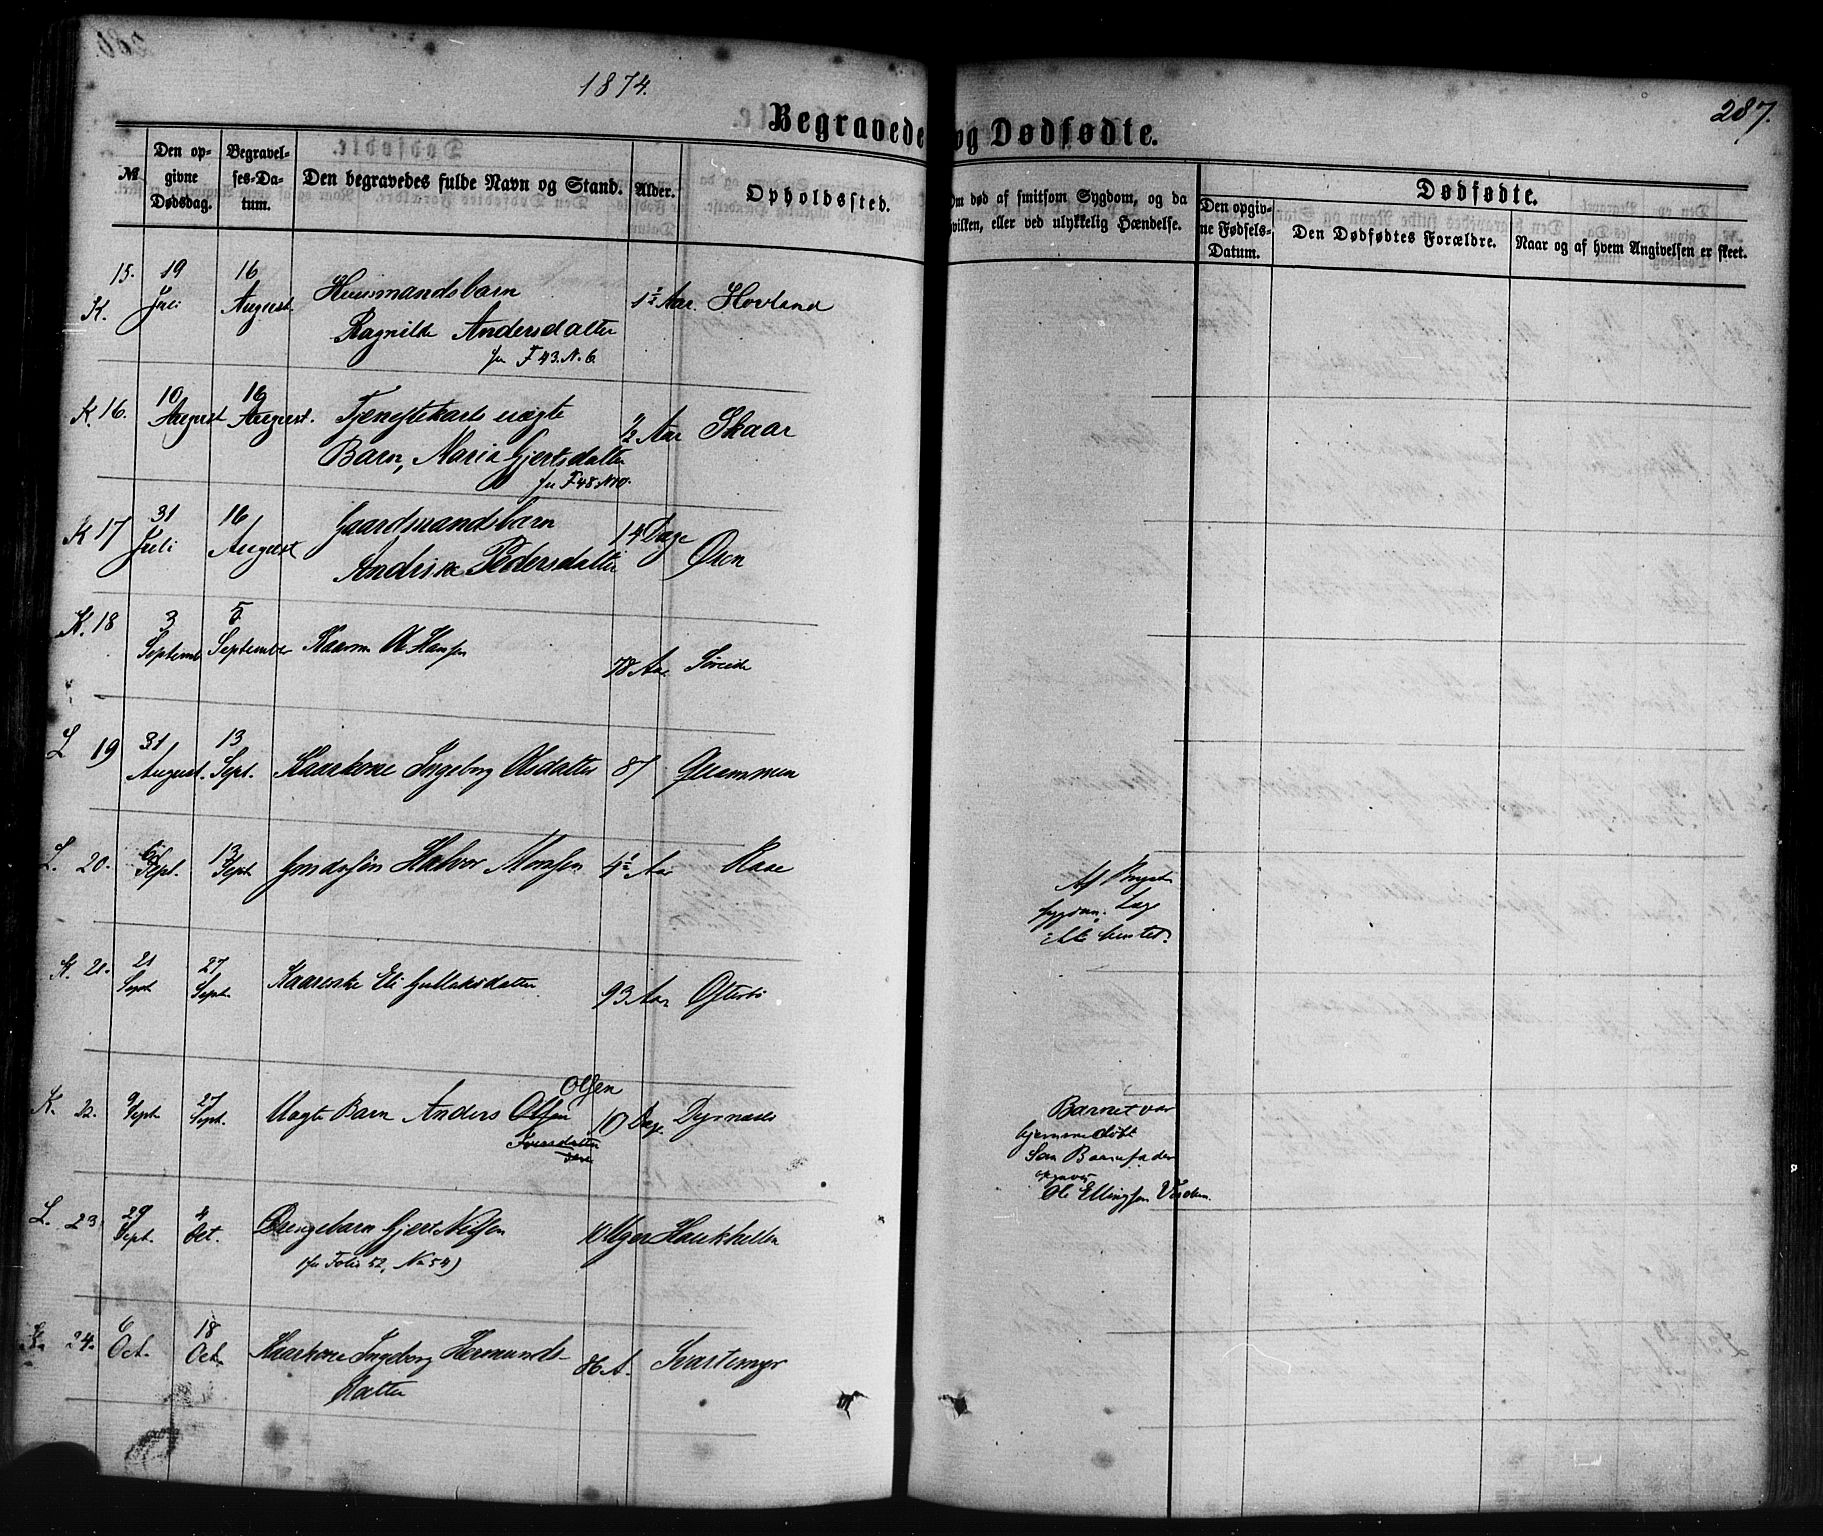 1874.
287.
Begravede og Dødfødte.
№
Den opgivne Dødsdag.
Begravelses-Datum.
Den begravedes fulde Navn og Stand.
Alder.
Opholdssted.
Om død af smitsom Sygdom, og da
hvilken, eller ved ulykkelig Hændelse.
Dødfødte.
Den opgivne Fødsels-Datum.
Den Dødfødtes Forældre.
Naar og af hvem Angivelsen er skeet.
K. 15. 19 Juli 16 August. Huusmandsbarn 1½ Aar. Hovland
Ragnilde Andersdatter
fr F 43. N. 6.
K 16. 10 August 16 August. Tjenestekarls uægte ½ Aar Skaar
Barn, Maria Gjertsdatter
K 17 31 Juli 16 August Gaardmandsbarn 14 Dage Øren
Pedersdatter
K. 18 3 Septemb 5 September Kaarm Ol Hansen 78 Aar Søreide
L 19 31 August. 13 Sept. Kaarkone Ingeborg Olsdatter 87
L. 20. 6 Sept. 13 Sept Halvor Monsen 4½ Aar Raae
Af Bryst
sygdom. Læge
ikke hentet.
K. 21. 21 Sept 27 Sept. Eli Gullaksdatter 93 Aar
K. 22. 9 Sept 27 Sept. Uægte Barn Anders Olsen Olsen 10 Dag. Dyrnæs
Iversdatter
Barnet var
hjemmedøbt
Som Barnefader
opgaves
Ole Ellingsen
L. 23. 29 Sept. 4 Oct. Drengebarn Gjert Nilsen 10 Uger Haukhellen
(fr Folio 52, No 54)
24. 6 Oct. 18 Oct. Kaarkone Ingeborg Hermunds- 86 A. Svartemyr
datter